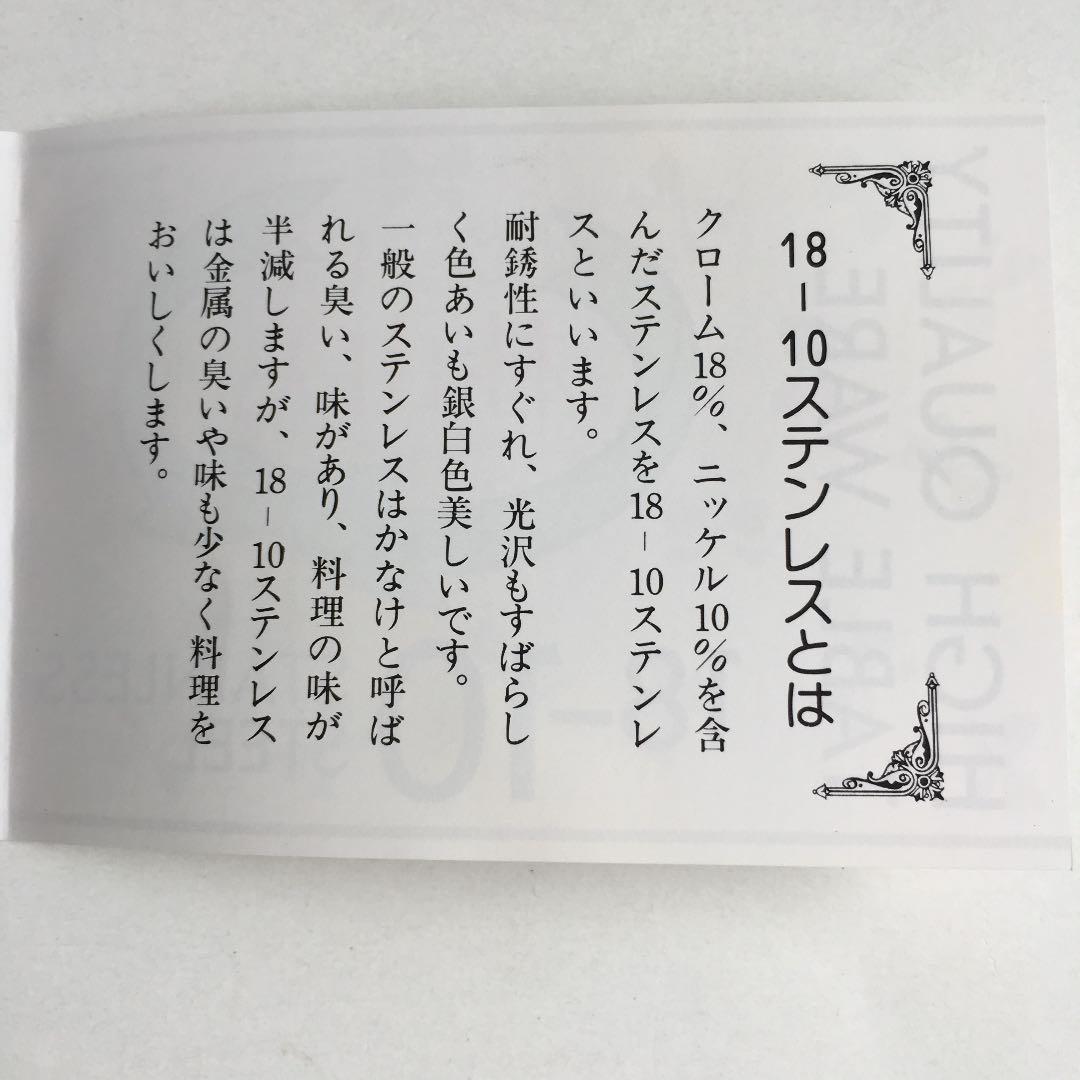 18-10ステンレスとは
クローム18%、ニッケル10%を含
んだステンレスを18-10ステンレ
スといいます。
耐銹性にすぐれ、光沢もすばらし
く色あいも銀白色美しいです。
一般のステンレスはかなけと呼ば
れる臭い、味があり、料理の味が
半減しますが、18-10ステンレス
は金属の臭いや味も少なく料理を
おいしくします。
HIGH QUALITY